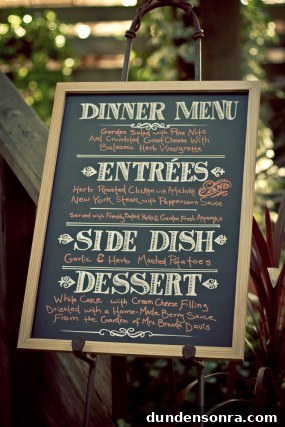 DINNER MENU
Garden Salad with Pine Nuts
And Crumbled Goat Cheese With
Balsamic Herb Vinaigrette
ENTRÉES
Herb Roasted Chicken with Artichoke
AND
New York Steak with Peppercorn Sauce
Served with Freshly Baked Rolls & Garden Fresh Asparagus
SIDE DISH
Garlic & Herb Mashed Potatoes
DESSERT
White Cake with Cream Cheese Filling
Drizzled with a Home-Made Berry Sauce
From the Garden of Mrs Brenda Davis
dundensonra.com